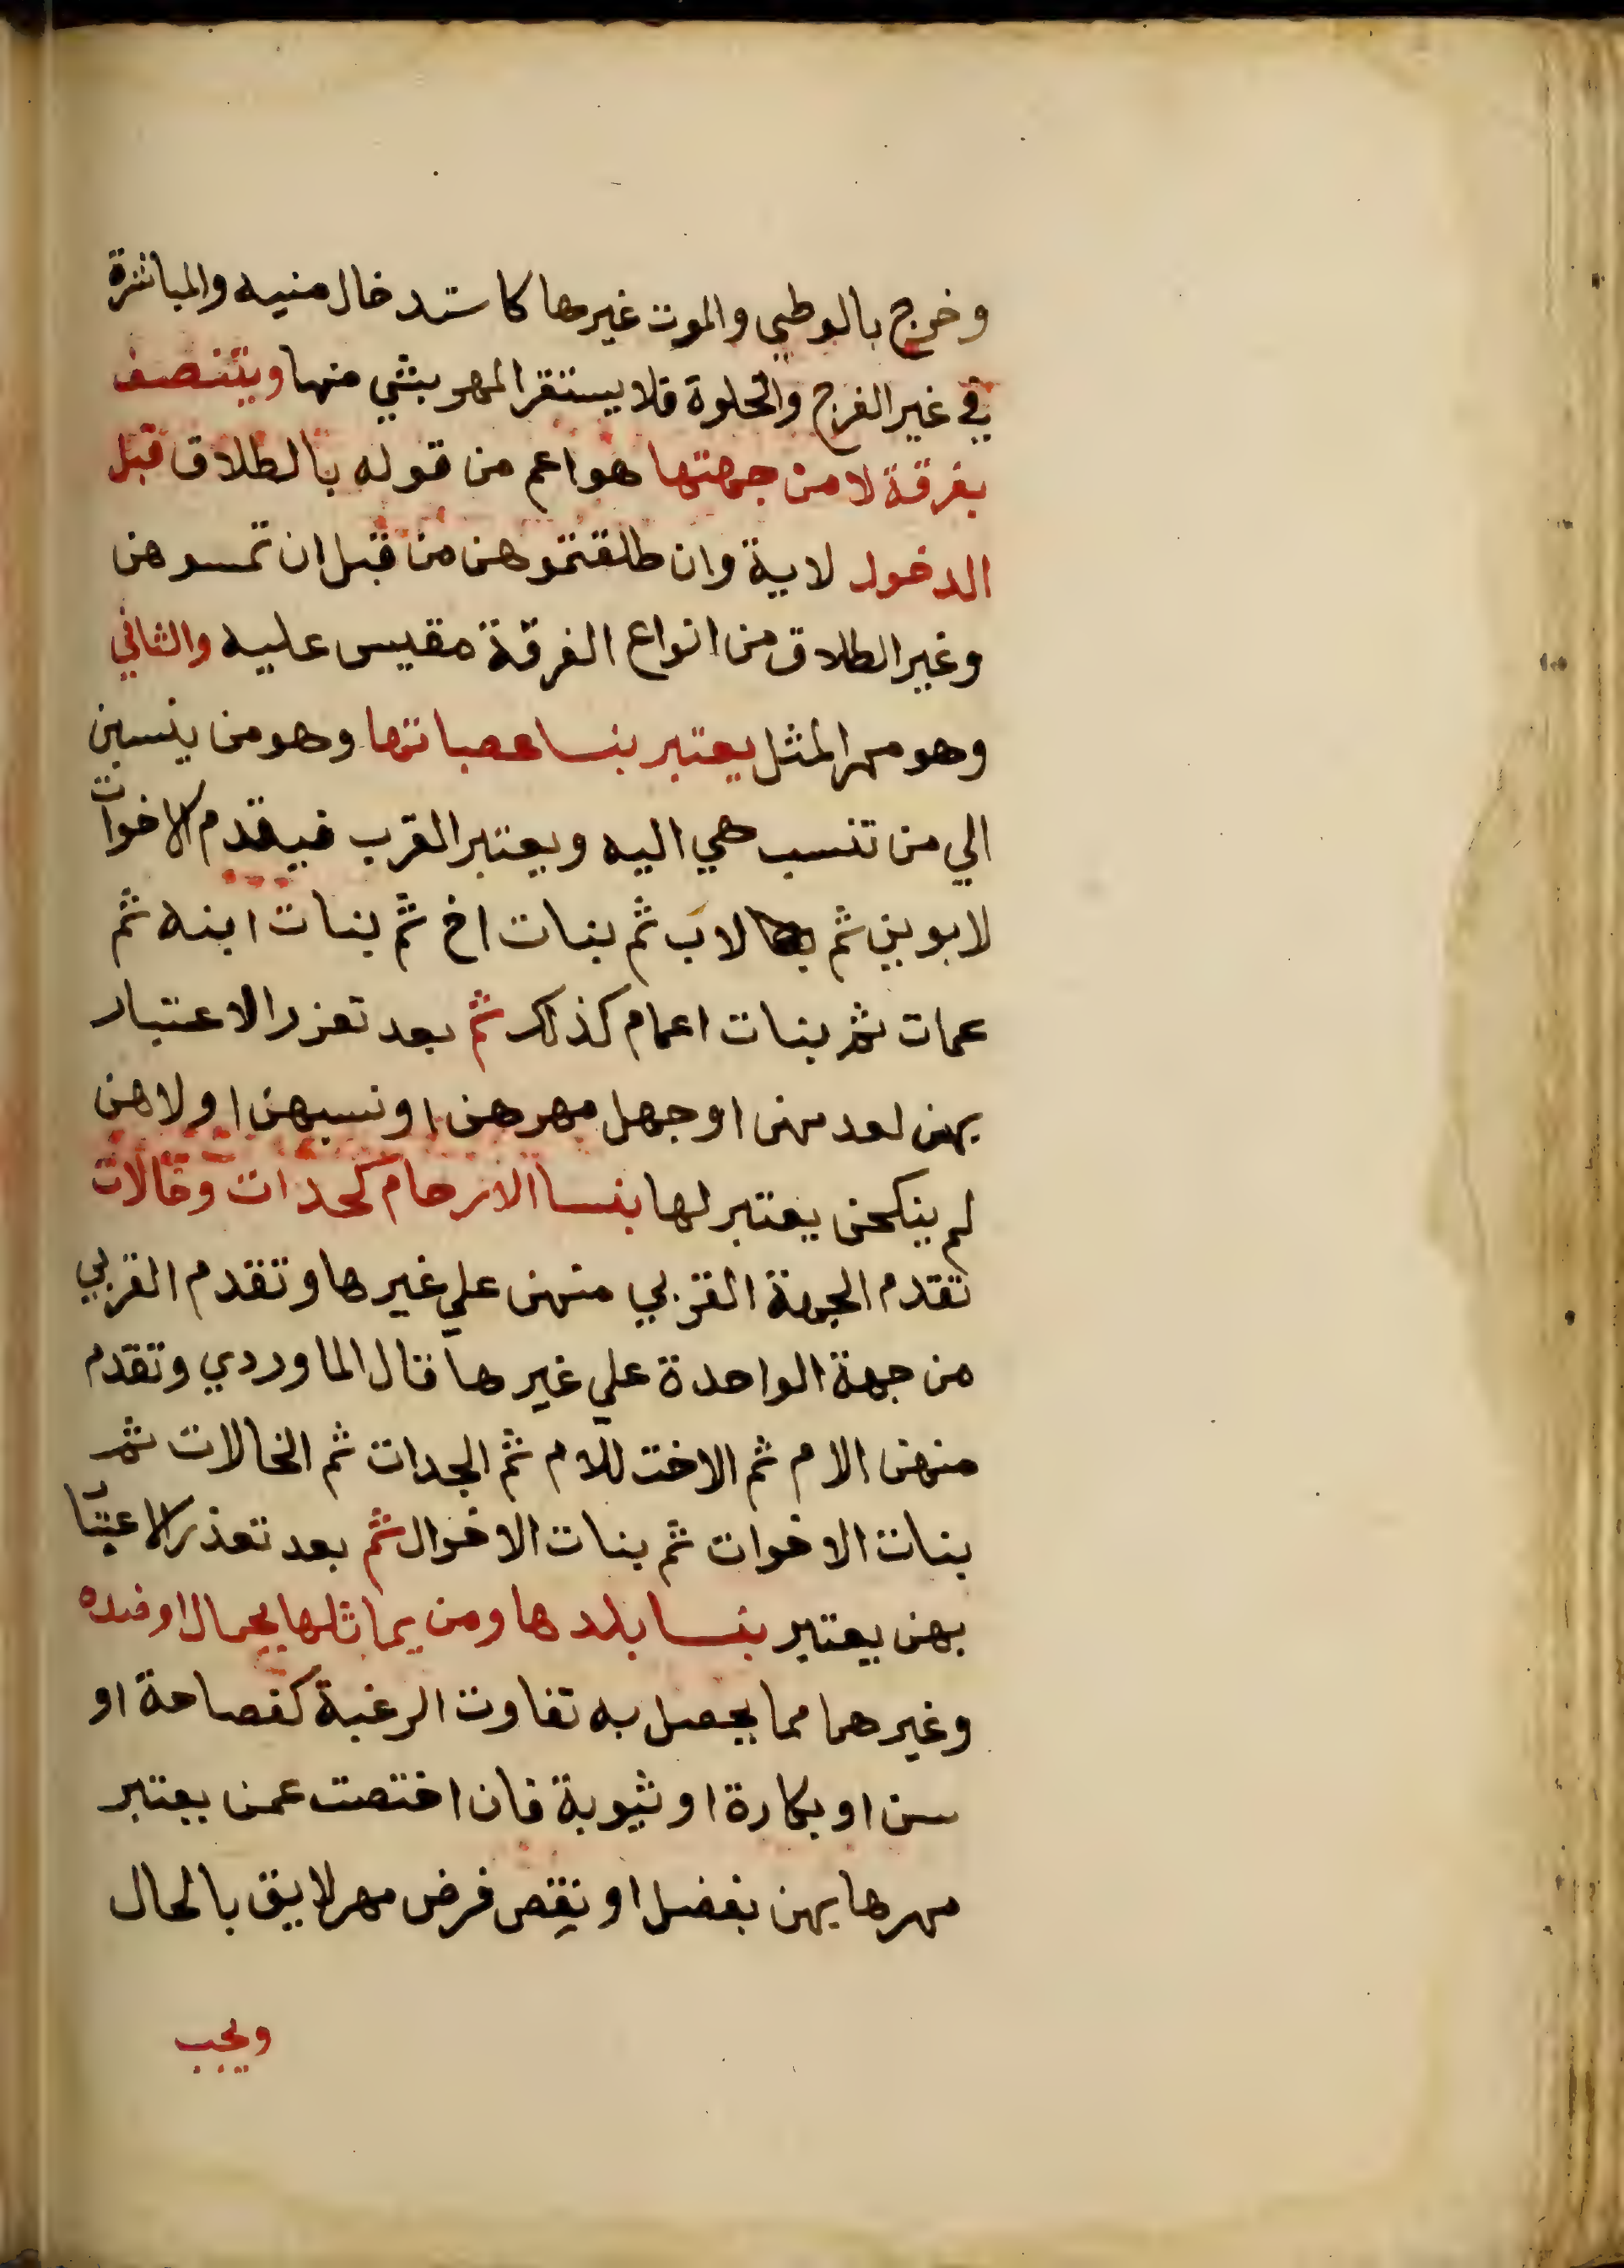 وخرج بالوطي والموت غيرها كاستدخال منيه والمباشرة
في غير الفرج والخلوة فلا يستقر المهر بشي منها ويتنصف
بفرقة لا من جهتها هو اعم من قوله بالطلاق قبل
الدخول لاية وان طلقتموهن من قبل ان تمسوهن
وغير الطلاق من انواع الفرقة مقيس عليه والثاني
وهو مهر المثل يعتبر بنسا عصباتها وهو من ينسبن
الي من تنسب هي اليه ويعتبر القرب فيقدم الاخوات
لابوين ثم لاب ثم بنات اخ ثم بنات ابنه ثم
عمات ثم بنات اعمام كذلك ثم بعد تعزر الاعتبار
بهن لعدمهن او جهل مهرهن او نسبهن او لاهن
لم ينكحن يعتبر لها بنسا الارحام كجدات وخالات
تقدم الجهة القربي منهن علي غيرها وتقدم القربي
من جهة الواحدة علي غيرها قال الماوردي وتقدم
منهن الام ثم الاخت للام ثم الجدات ثم الخالات ثم
بنات الاخوات ثم بنات الاخوال ثم بعد تعذر الاعتبار
بهن يعتبر بنسا بلدها ومن يماثلها بجمال او ضده
وغيرهما مما يحصل به تفاوت الرغبة كفصاحة او
سن او بكارة او ثيوبة فان اختصت عمن يعتبر
مهرها بهن بفضل او نقص فرض مهر لايق بالحال
ويجب